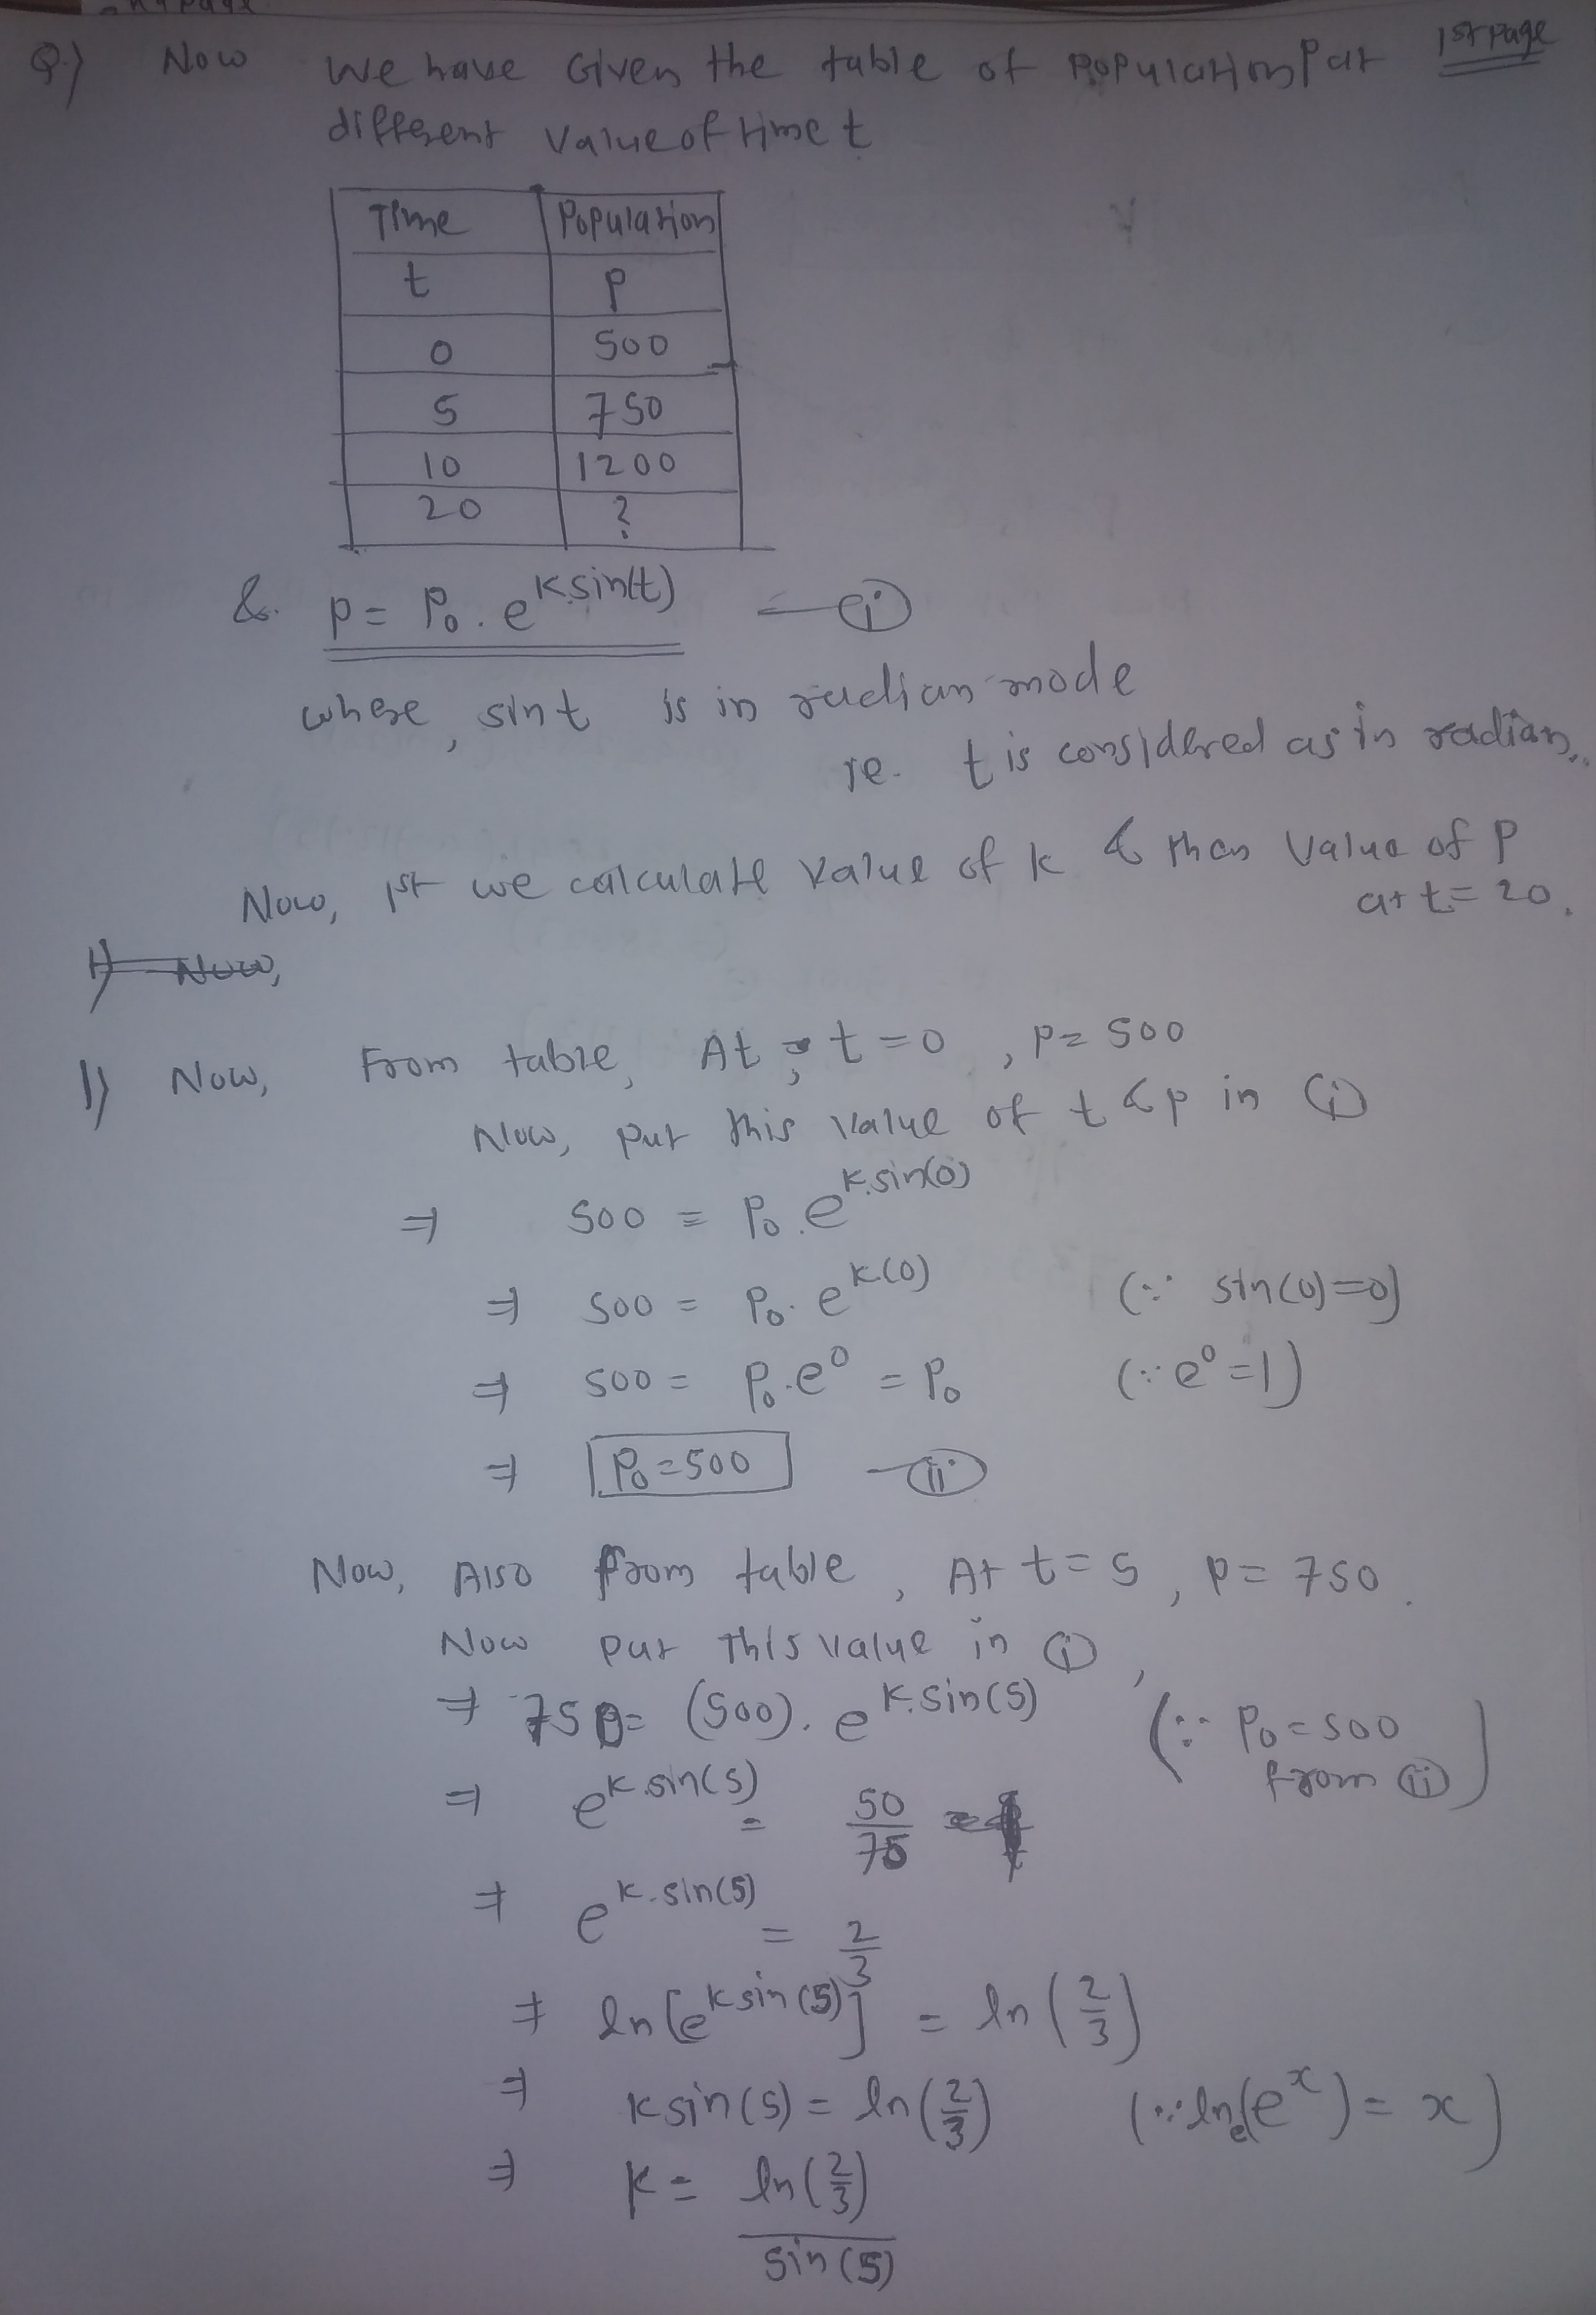 1st page
Q.) Now We have Given the table of population P at
different value of time t
Time Population
t P
0 500
5 750
10 1200
20 ?
&. P = P₀. e^(k.sin(t)) — (i)
where, sint is in radian mode
ie. t is considered as in radian.
Now, 1st we calculate value of k & then value of P
at t = 20.
1) Now,
1) Now, From table, At, t = 0, P = 500
Now, put this value of t & p in (i)
⇒ 500 = P₀. e^(k.sin(0))
⇒ 500 = P₀. e^(k.(0)) (∵ sin(0)=0)
⇒ 500 = P₀.e⁰ = P₀ (∵ e⁰ = 1)
⇒ P₀ = 500 — (ii)
Now, Also from table, At t = 5, P = 750.
Now put this value in (i),
⇒ 750 = (500). e^(k.sin(5)) (∵ P₀ = 500
from (ii))
⇒ e^(k.sin(5)) = 50/75
⇒ e^(k.sin(5)) = 2/3
⇒ ln[e^(k sin(5))] = ln(2/3)
⇒ k sin(5) = ln(2/3) (∵ lnₑ(e^x) = x)
⇒ k = ln(2/3)/sin(5)